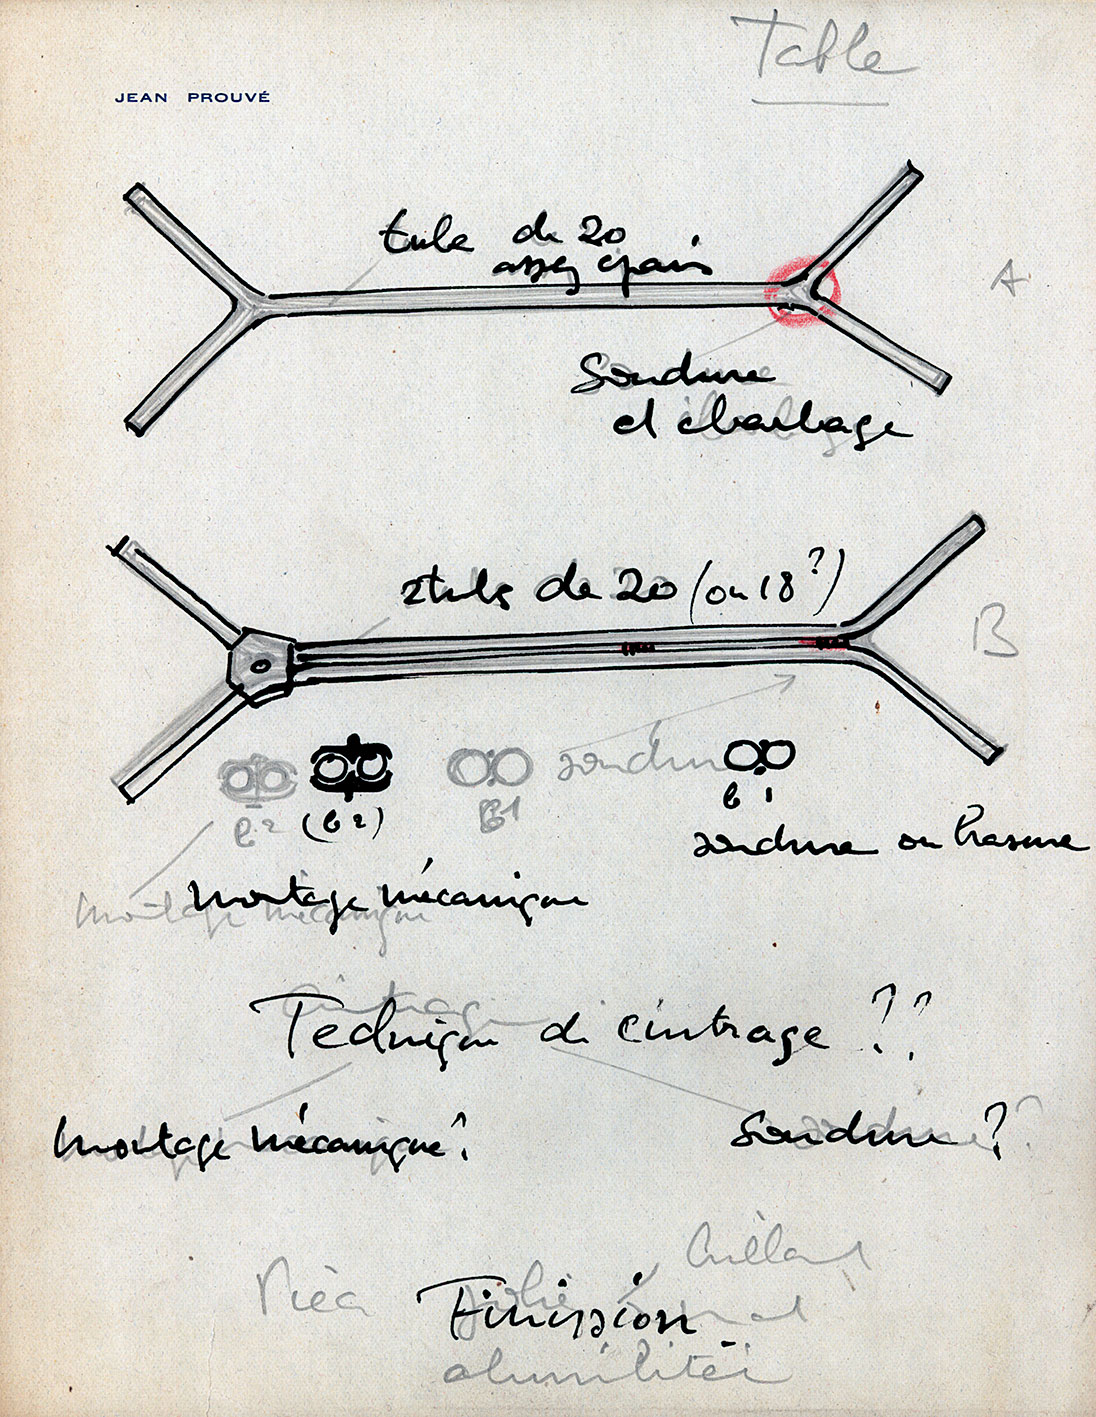 Table
JEAN PROUVÉ
tube de 20
assez épais
A
Soudure
et ébarbage
2 tubes de 20 (ou 18?)
B
soudure
b2 (b2) B1 b1
soudure ou brasure
montage mécanique
montage mécanique
cintrage
Technique de cintrage ??
montage mécanique?
Soudure ?
Finission